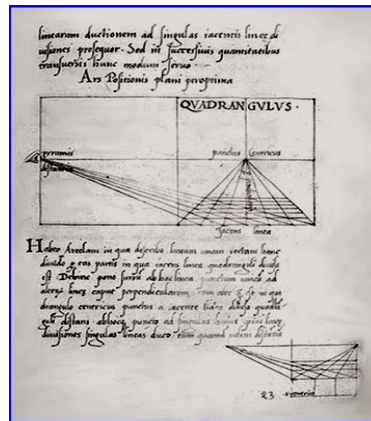 linearum ductionem ad singulas iacentis lineę di
uisiones prosequor. Sed in successiuis quantitatibus
transuersis hunc modum seruo
Ars Positionis plani peroptima
QVADRANGVLVS.
punctus Centricus
distantia
Iacens linea
Habeo Areolam in qua describo lineam unam rectam hanc
diuido eas partis in qua iacens linea quadranguli diuisa
est Dehinc pono sursum ab hac linea punctum unicum ad
alterum lineę caput perpendicularem tam alte est in qua
drangulo centricus punctus a iacente
distans ab hoc puncto ad singulas huius lineę
diuisiones singulas lineas duco tum quantum uelim distantia
23